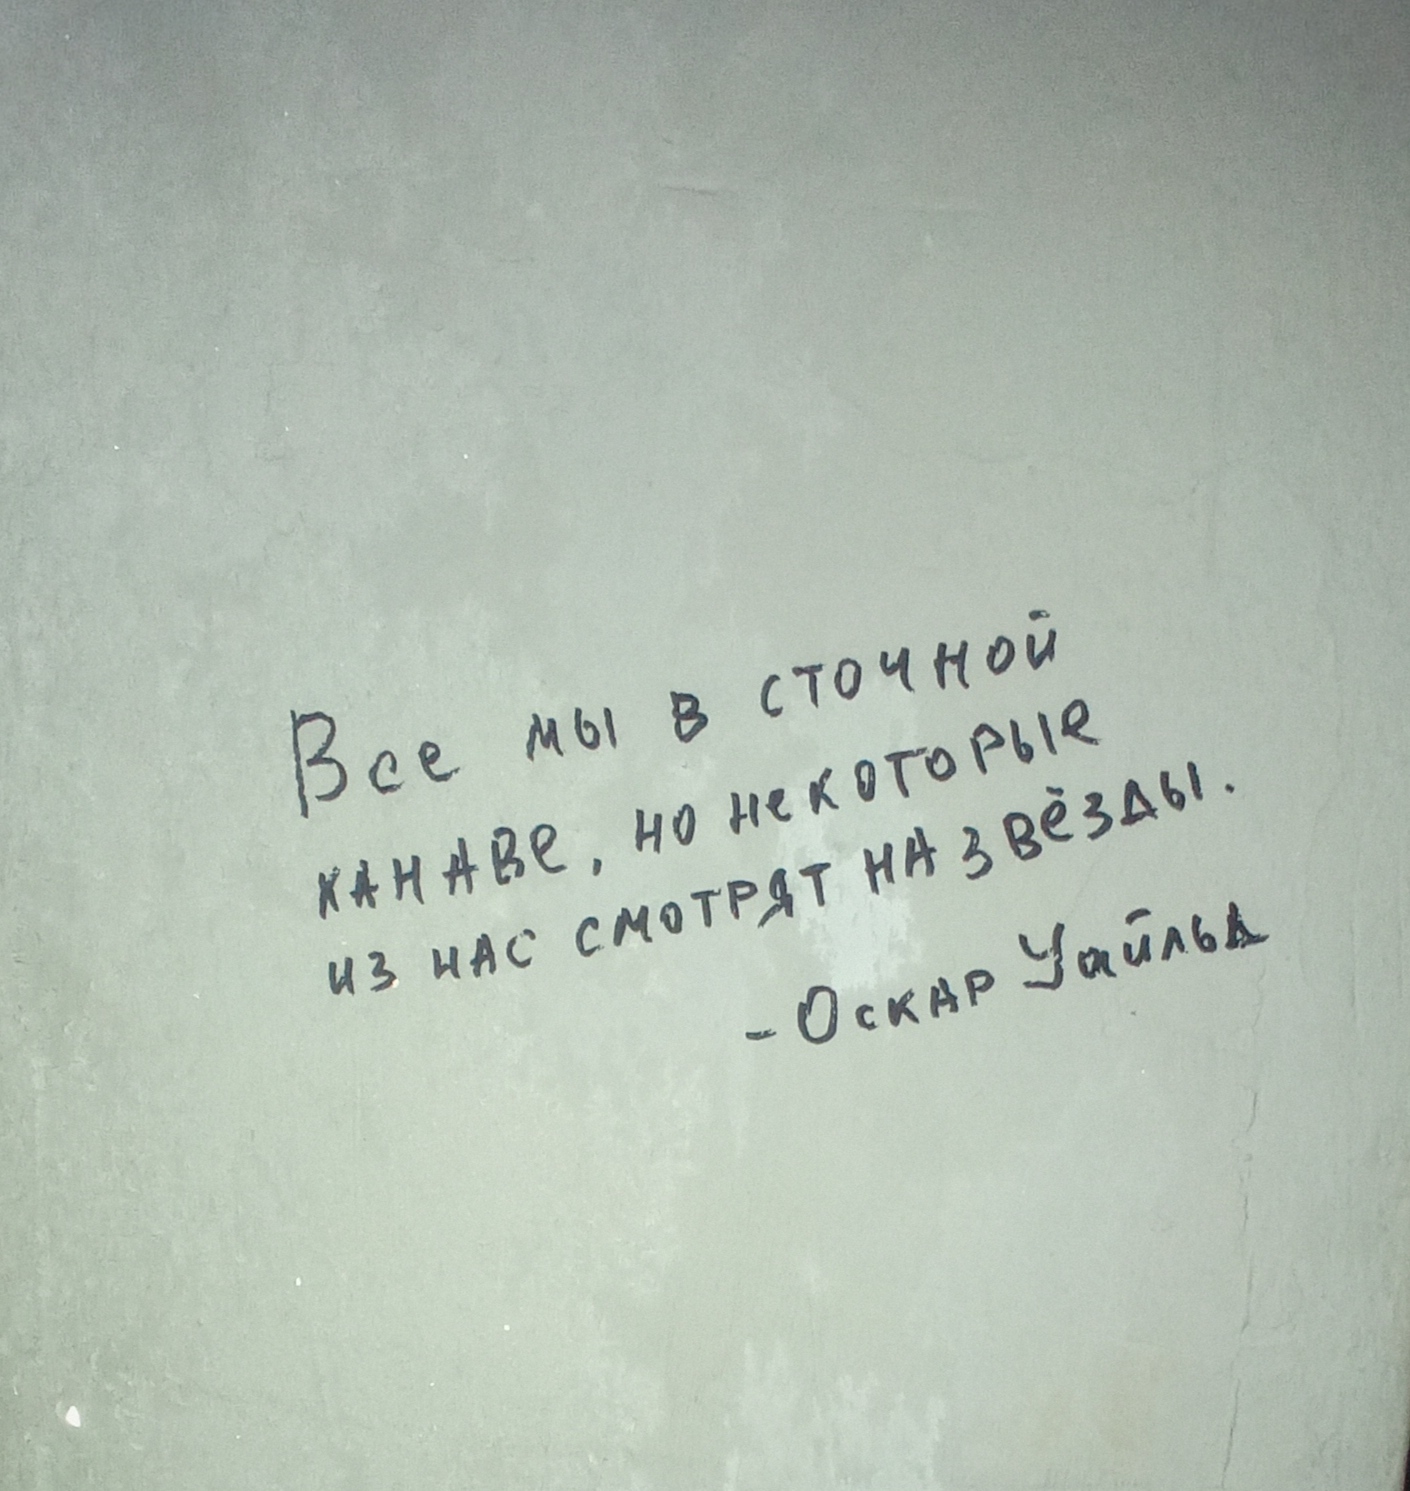 Все мы в сточной
канаве, но некоторые
из нас смотрят на звёзды.
- Оскар Уайльд